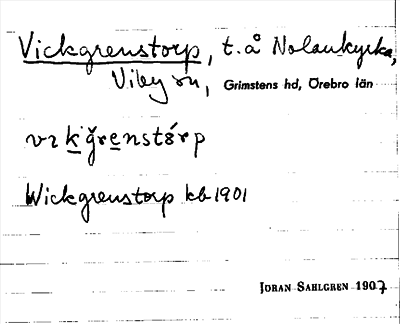 Vickgrenstorp, t. å Nolankyrka,
Viby sn, Grimstens hd, Örebro län
Wickgrenstorp kb 1901
JÖRAN SAHLGREN 1907